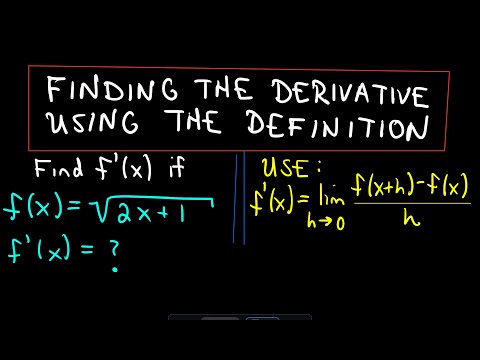 FINDING THE DERIVATIVE
USING THE DEFINITION
Find f'(x) if
f(x) = √(2x+1)
f'(x) = ?
USE:
f'(x) = lim h→0 (f(x+h)-f(x))/h